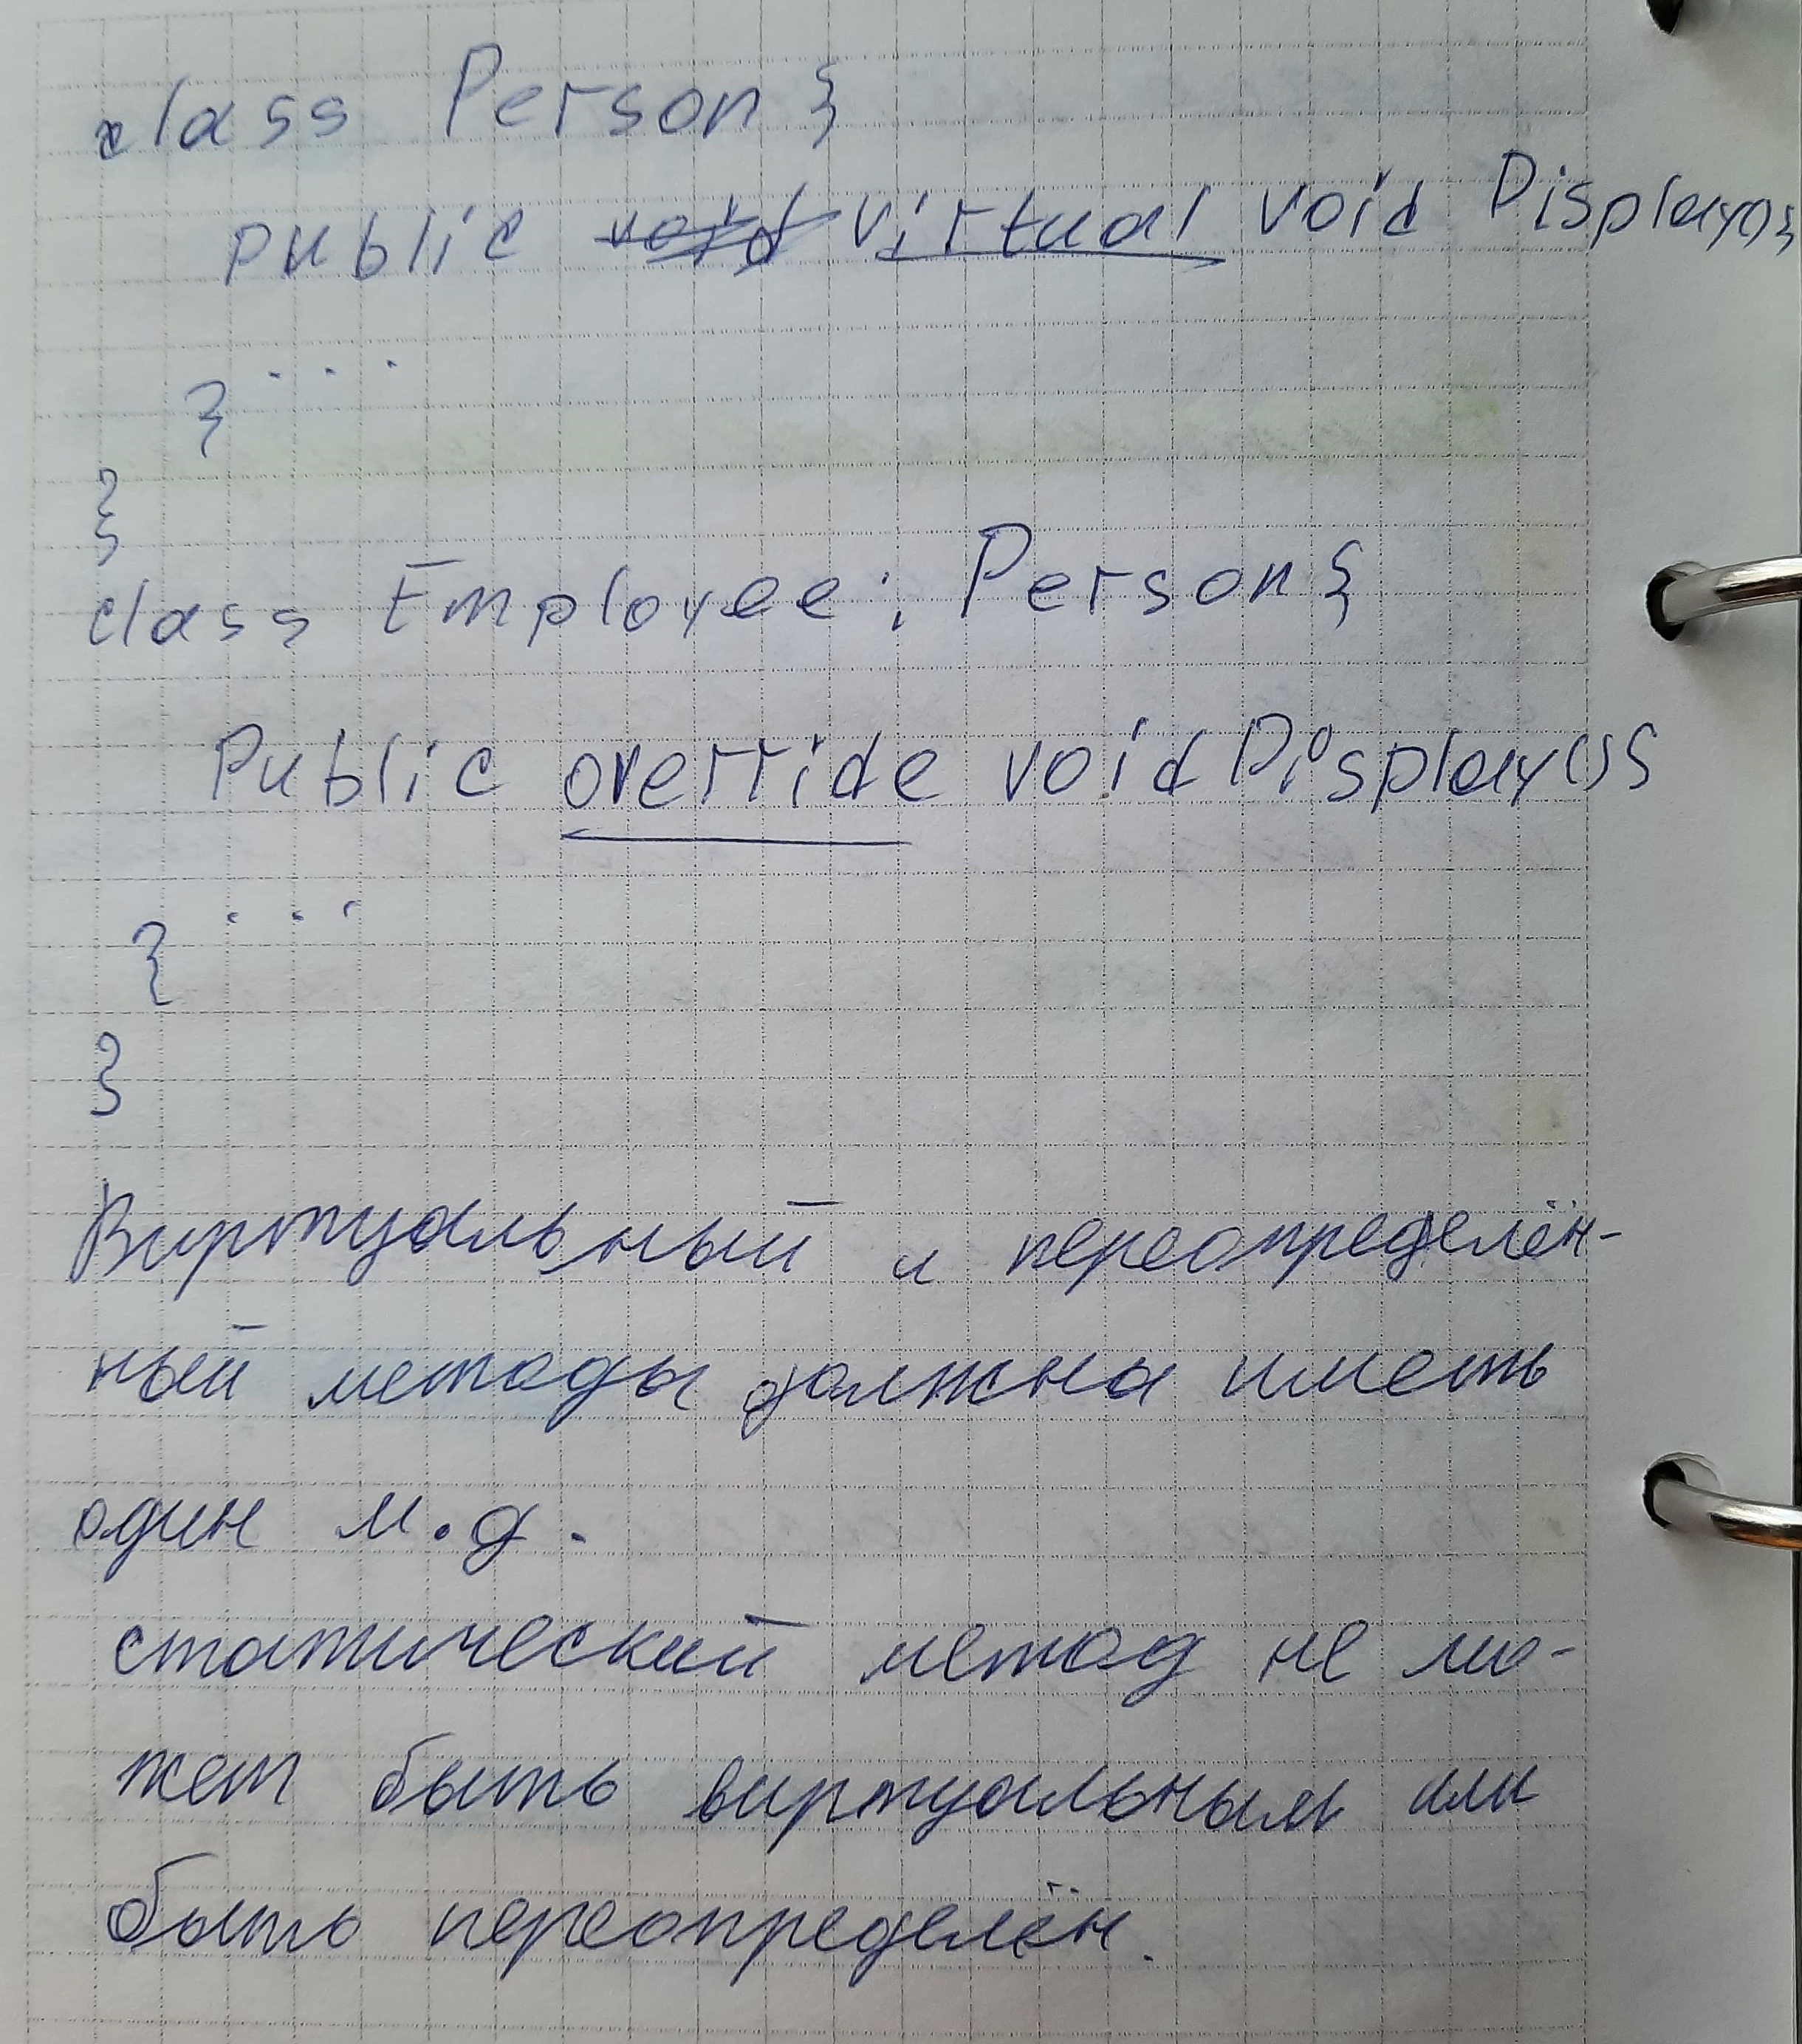 class Person {
public void virtual void Display(){
...
}
}
class Employee : Person {
Public override void Display(){
...
}
}
Виртуальный и переопределён-
ный методы должны иметь
один м.д.
статический метод не мо-
жет быть виртуальным или
быть переопределён.